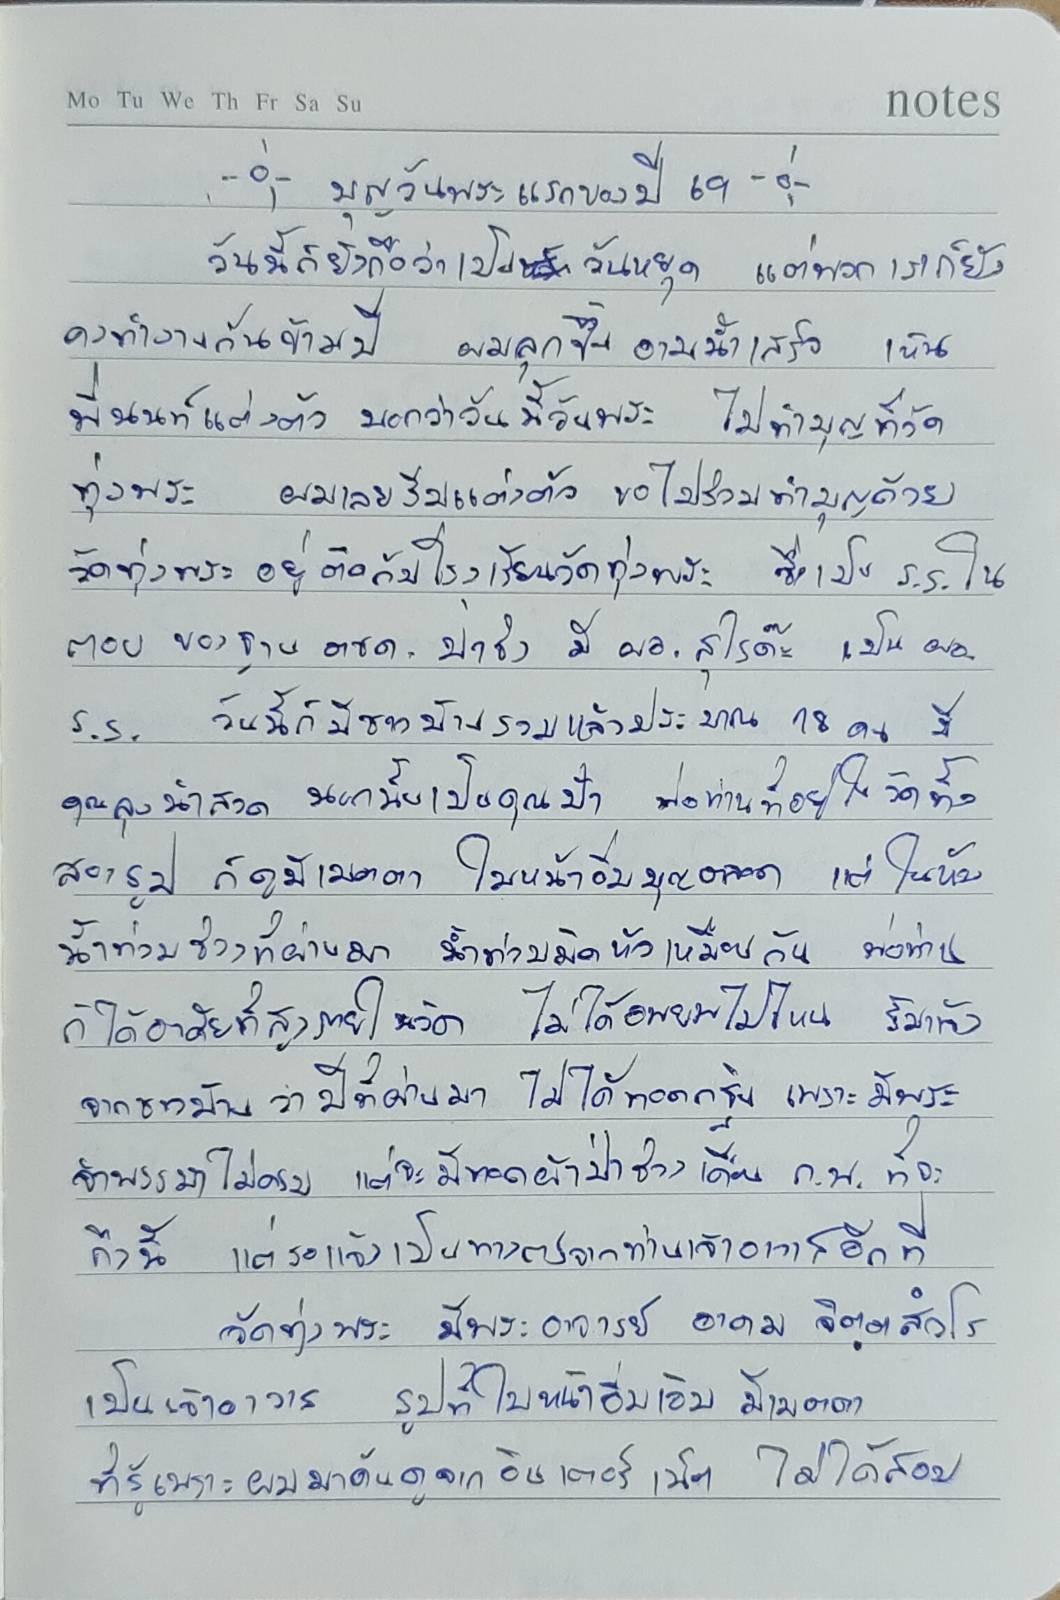 Mo Tu We Th Fr Sa Su notes
บุญวันพระแรกของปี ๖๙
วันนี้ก็ยังถือว่าเป็น วันหยุด แต่พวกเราก็ยัง
คงทำงานกันข้ามปี ผมลุกขึ้น อาบน้ำเสร็จ เห็น
พี่นนท์แต่งตัว บอกว่าวันนี้วันพระ ไปทำบุญที่วัด
ทุ่งพระ ผมเลยรีบแต่งตัว ขอไปร่วมทำบุญด้วย
วัดทุ่งพระ อยู่ติดกับโรงเรียนวัดทุ่งพระ ซึ่งเป็น ร.ร. ใน
ตอบ ของฐาน ตชด. ป่าชิง มี ผอ. สุไรด๊ะ เป็น ผอ.
ร.ร. วันนี้ก็มีชาวบ้านรวมแล้วประมาณ 18 คน มี
คุณลุงนำสวด นอกนั้นเป็นคุณป้า พ่อท่านที่อยู่ในวัดทั้ง
สองรูป ก็ดูมีเมตตา ใบหน้าอิ่มบุญตลอด แต่
น้ำท่วมช่วงที่ผ่านมา น้ำท่วมมิดหัวเหมือนกัน พ่อท่าน
ก็ได้อาศัยที่สูงภายในวัด ไม่ได้อพยพไปไหน
จากชาวบ้าน ว่าปีที่ผ่านมา ไม่ได้ทอดกฐิน เพราะมีพระ
จำพรรษาไม่ครบ แต่จะมีทอดผ้าป่าช่วงเดือน ก.พ. ที่จะ
ถึงนี้ แต่รอแจ้งเป็นทางการจากท่านเจ้าอาวาสอีกที
วัดทุ่งพระ มีพระอาจารย์ อาคม จิตฺตสํวโร
เป็นเจ้าอาวาส รูปที่ใบหน้าอิ่มเอิบ มีเมตตา
ที่รู้เพราะผมมาค้นดูจาก อินเตอร์เน็ต ไม่ได้สอบ